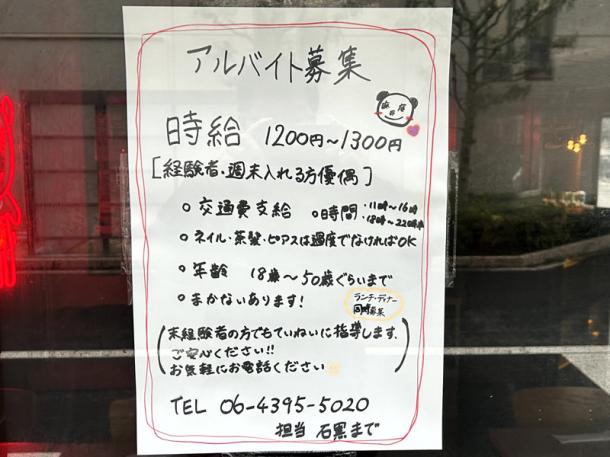 アルバイト募集
時給 1200円～1300円
[経験者・週末入れる方優偶]
○ 交通費支給 ○時間・11時～16時
・18時～22時半
○ ネイル・茶髪・ピアスは過度でなければOK
○ 年齢 18歳～50歳ぐらいまで
○ まかないあります!
ランチ・ディナー
同時募集
(未経験者の方でもていねいに指導します.
ご安心ください!!
お気軽にお電話ください)
TEL 06-4395-5020
担当 石黒まで